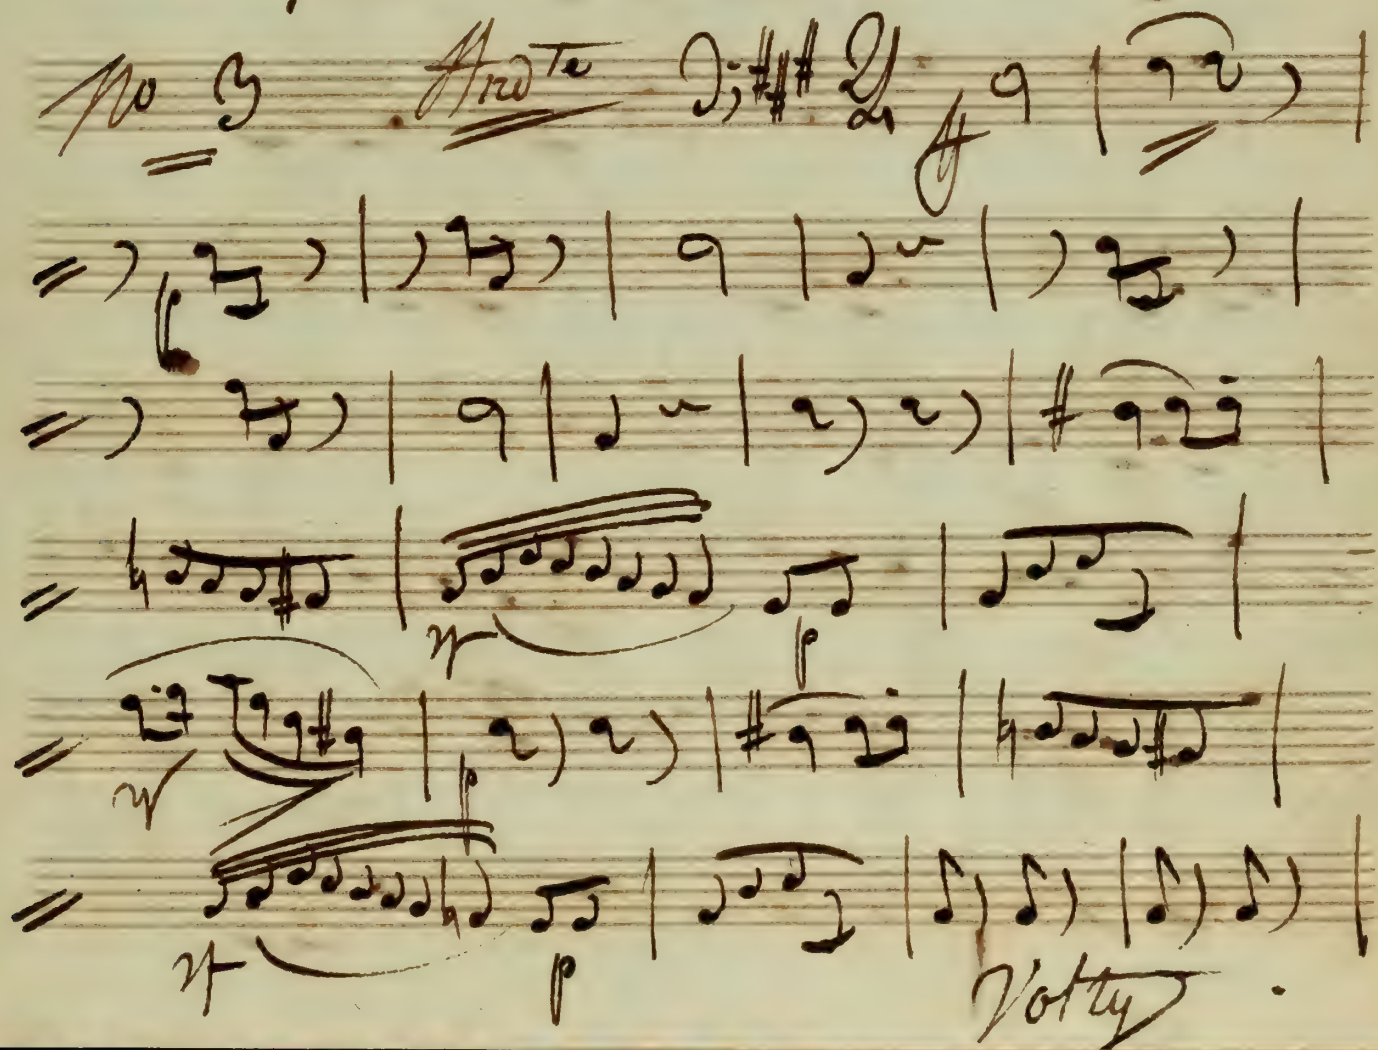 No 3 And.te 2/4 f
p
rf p
rf p
rf p
Volty